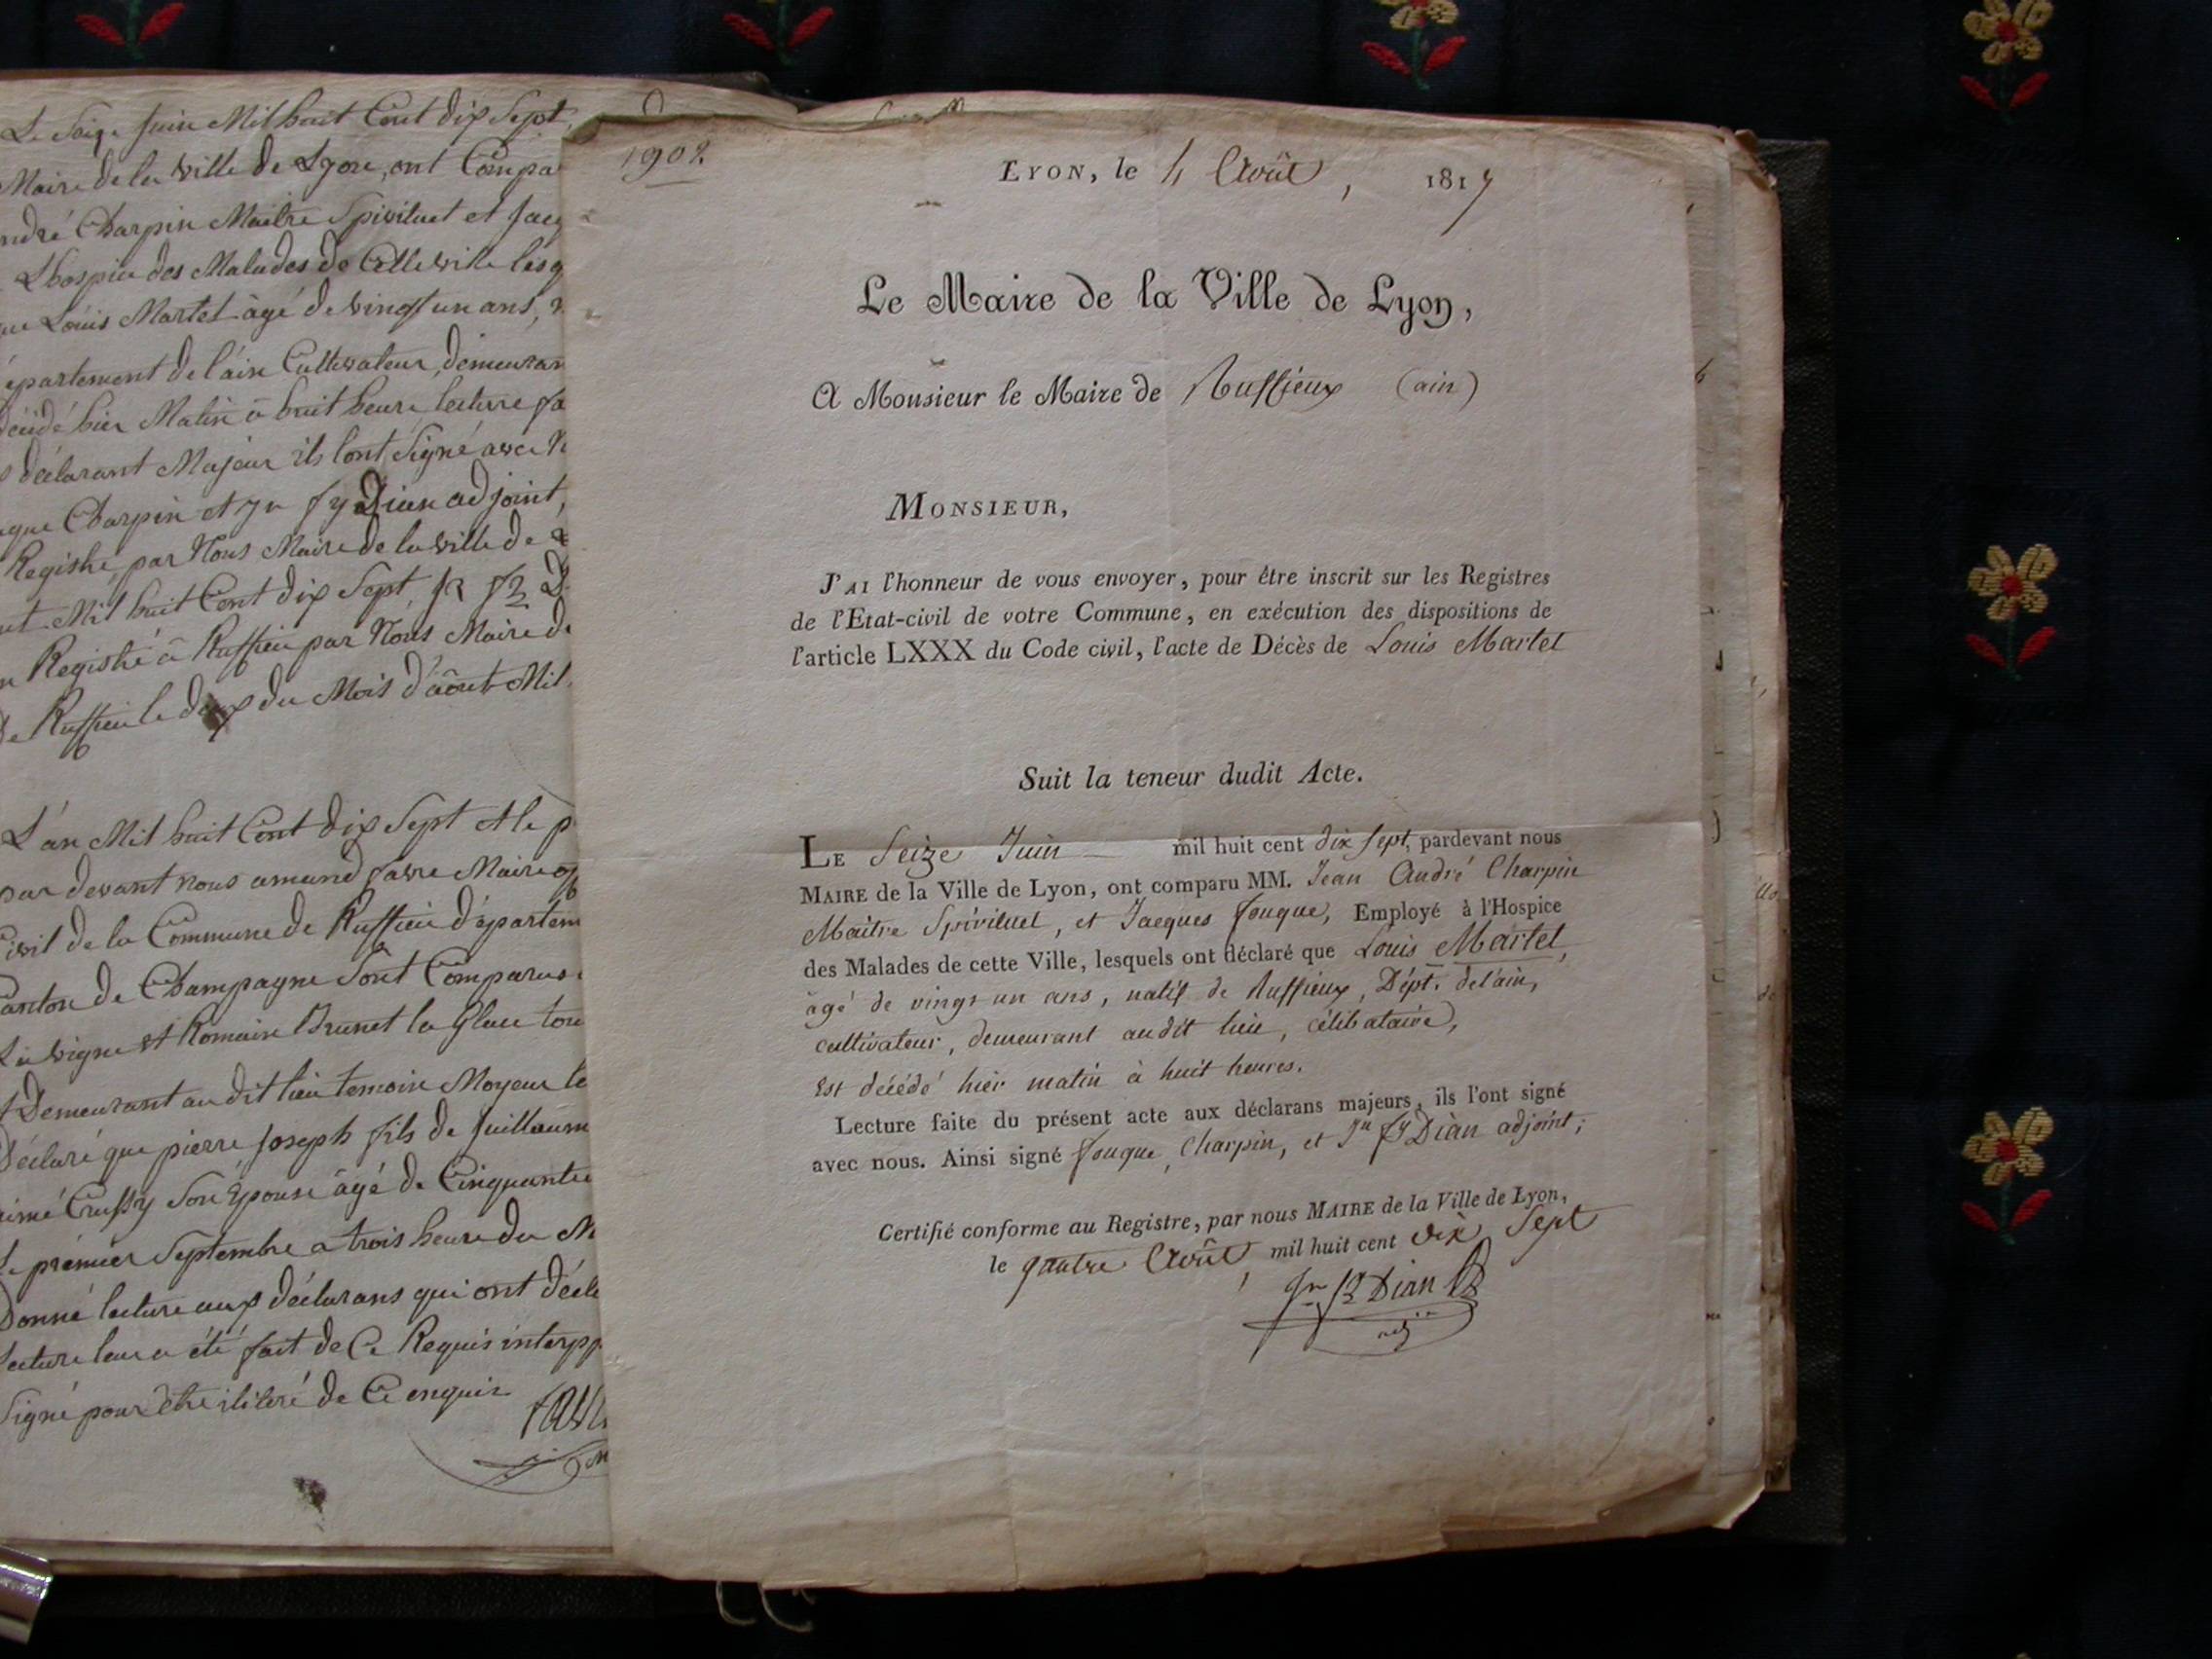 Le Seize Juin Mil huit Cent dix Sept
Maire de la ville de Lyon, ont Compa
ndré Charpin Maitre Spirituel et Jacq
Lhospice des Malades de Cette ville lesq
que Louis Martel âgé de vingt un ans,
épartement de l'ain Cultivateur, demeuran
décédé hier Matin à huit heure lecture fa
déclarant Majeur ils lont Signé avec N
uque Charpin et Jn fy Dian adjoint,
Registre par Nous Maire de la ville de
ut Mil huit Cent dix Sept
Registré à Ruffieu par Nous Maire de
de Ruffieu le dix du Mois d'août Mil
L'an Mil huit Cent dix Sept et le p
par devant nous amand favre Maire off
Civil de la Commune de Ruffieu départem
Canton de Champagne Sont Comparus
La vigne et Romain Brunet la glace tou
Demeurant au dit lieu temoin Mojeur le
Déclaré que pierre Joseph fils de Guillaum
aimé Crussy Son Epouse âgé de Cinquante
Le premier Septembre a trois heure du M
Donné lecture aux déclarans qui ont décl
Lecture leur a été fait de Ce Requis interpp
Signé pour être iliteré de Ce enquis
1902.
LYON, le 4 Août, 1817
Le Maire de la Ville de Lyon,
A Monsieur le Maire de Ruffieux (ain)
MONSIEUR,
J'AI l'honneur de vous envoyer, pour être inscrit sur les Registres
de l'Etat-civil de votre Commune, en exécution des dispositions de
l'article LXXX du Code civil, l'acte de Décès de Louis Martel
Suit la teneur dudit Acte.
LE Seize Juin mil huit cent dix sept, pardevant nous
MAIRE de la Ville de Lyon, ont comparu MM. Jean André Charpin
Maitre Spirituel, et Jacques fouque, Employé à l'Hospice
des Malades de cette Ville, lesquels ont déclaré que Louis Martel,
âgé de vingt un ans, natif de Ruffieux, Dépt. de l'ain,
cultivateur, demeurant audit lieu, célibataire,
est décédé hier matin à huit heures.
Lecture faite du présent acte aux déclarans majeurs, ils l'ont signé
avec nous. Ainsi signé fouque, Charpin, et Jn fs Dian adjoint;
Certifié conforme au Registre, par nous MAIRE de la Ville de Lyon,
le quatre Août, mil huit cent dix Sept
Jn fs Dian